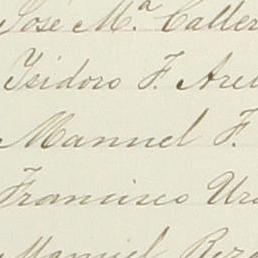 José M.ª Caller
Isidoro F. Are
Manuel F.
Francisco Ur
Manuel Beza